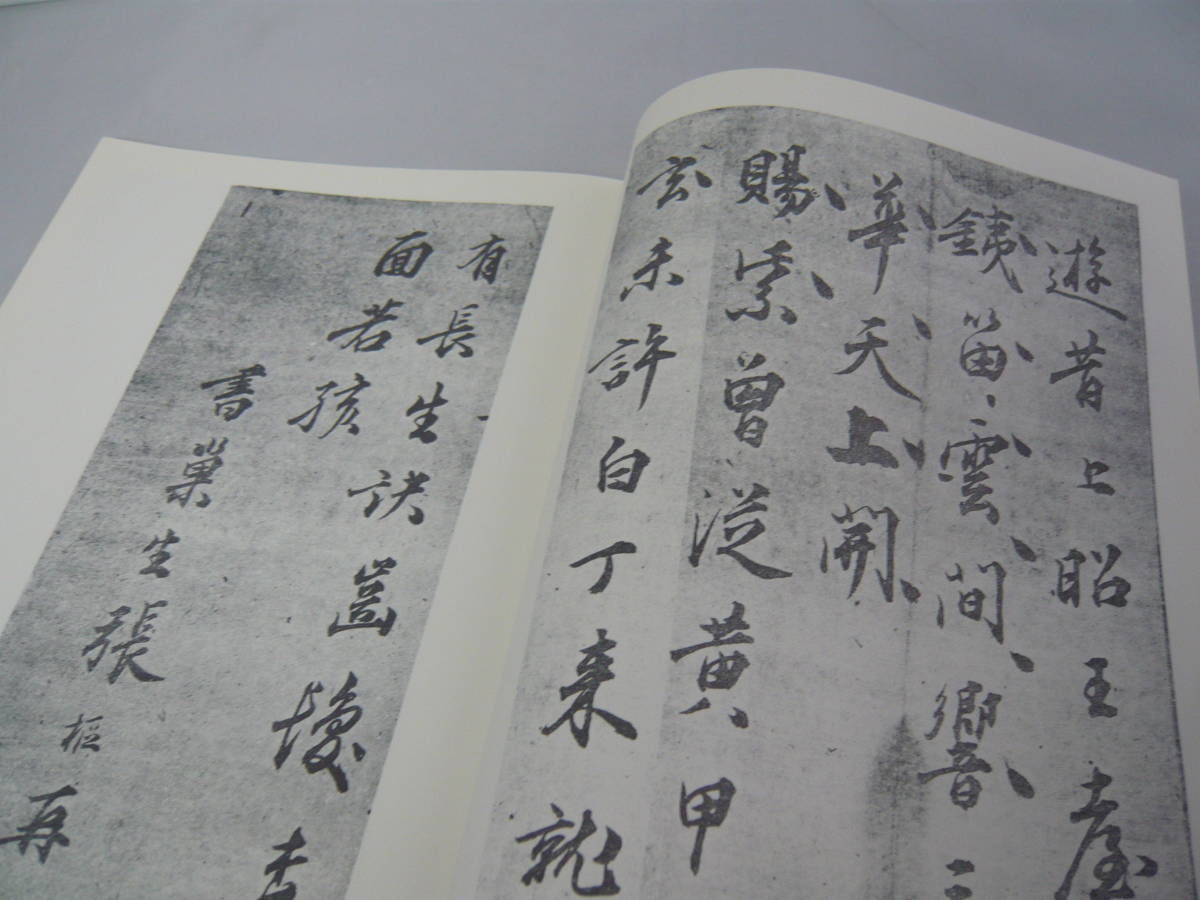 遊昔上昭王臺
銕笛雲間響三
華天上開
賜紫曾從黄甲
玄未許白丁来就
有長生訣㟁
面若孩
書巢生張樞再